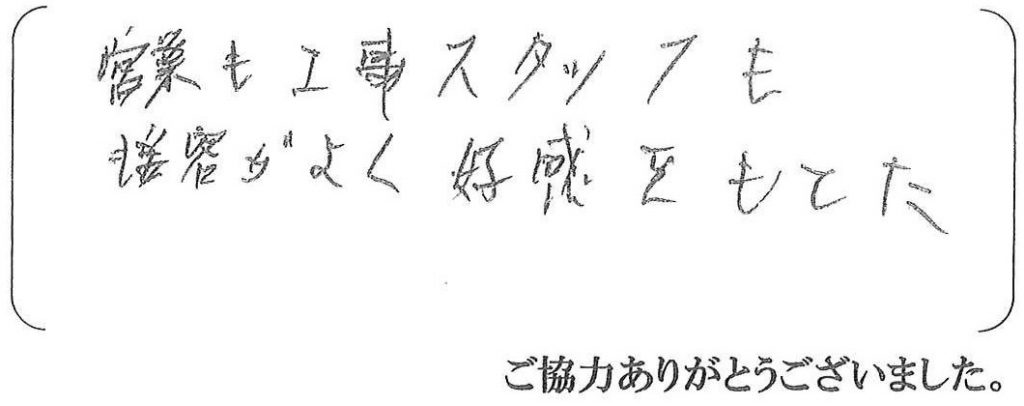 営業も工事スタッフも
接客がよく好感をもてた
ご協力ありがとうございました。